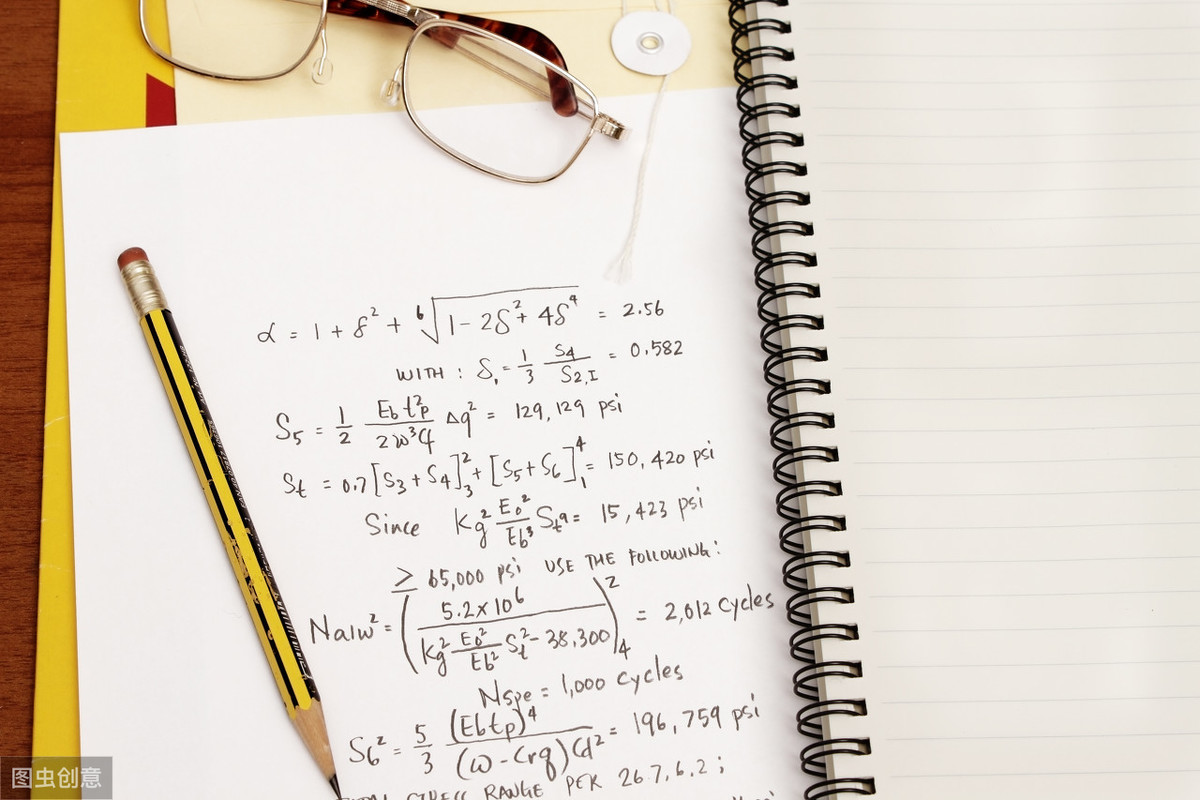 α = 1 + δ² + ⁶√(1 - 2δ² + 4δ⁴) = 2.56
WITH : δ₁ = 1/3 S4/S2,I = 0.582
S₅ = 1/2 Eb t²p / 2w³Cf Δq² = 129,129 psi
St = 0.7 [S3 + S4]²₃ + [S5 + S6]⁴₁ = 150,420 psi
Since Kg² Eo²/Eb³ St^a = 15,423 psi
≥ 65,000 psi USE THE FOLLOWING:
Nalw² = (5.2 x 10⁶ / Kg² Eo²/Eb² St² - 38,300)²₄ = 2,012 cycles
Nspe = 1,000 cycles
S6² = 5/3 (Ebtp)⁴ / (w - Crq)Cd² = 196,759 psi
STRESS RANGE PER 26.7,6,2 ;
图虫创意